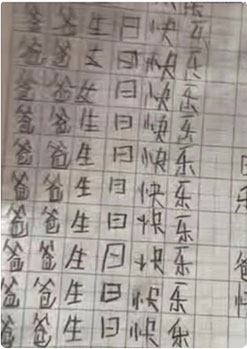 爸爸生日快乐
爸爸生日快乐
爸爸女日快乐
爸爸生日快乐
爸爸生日快乐
爸爸生日快乐
爸爸生日快乐
爸爸生日快乐
爸爸生日快乐
爸爸生日快乐